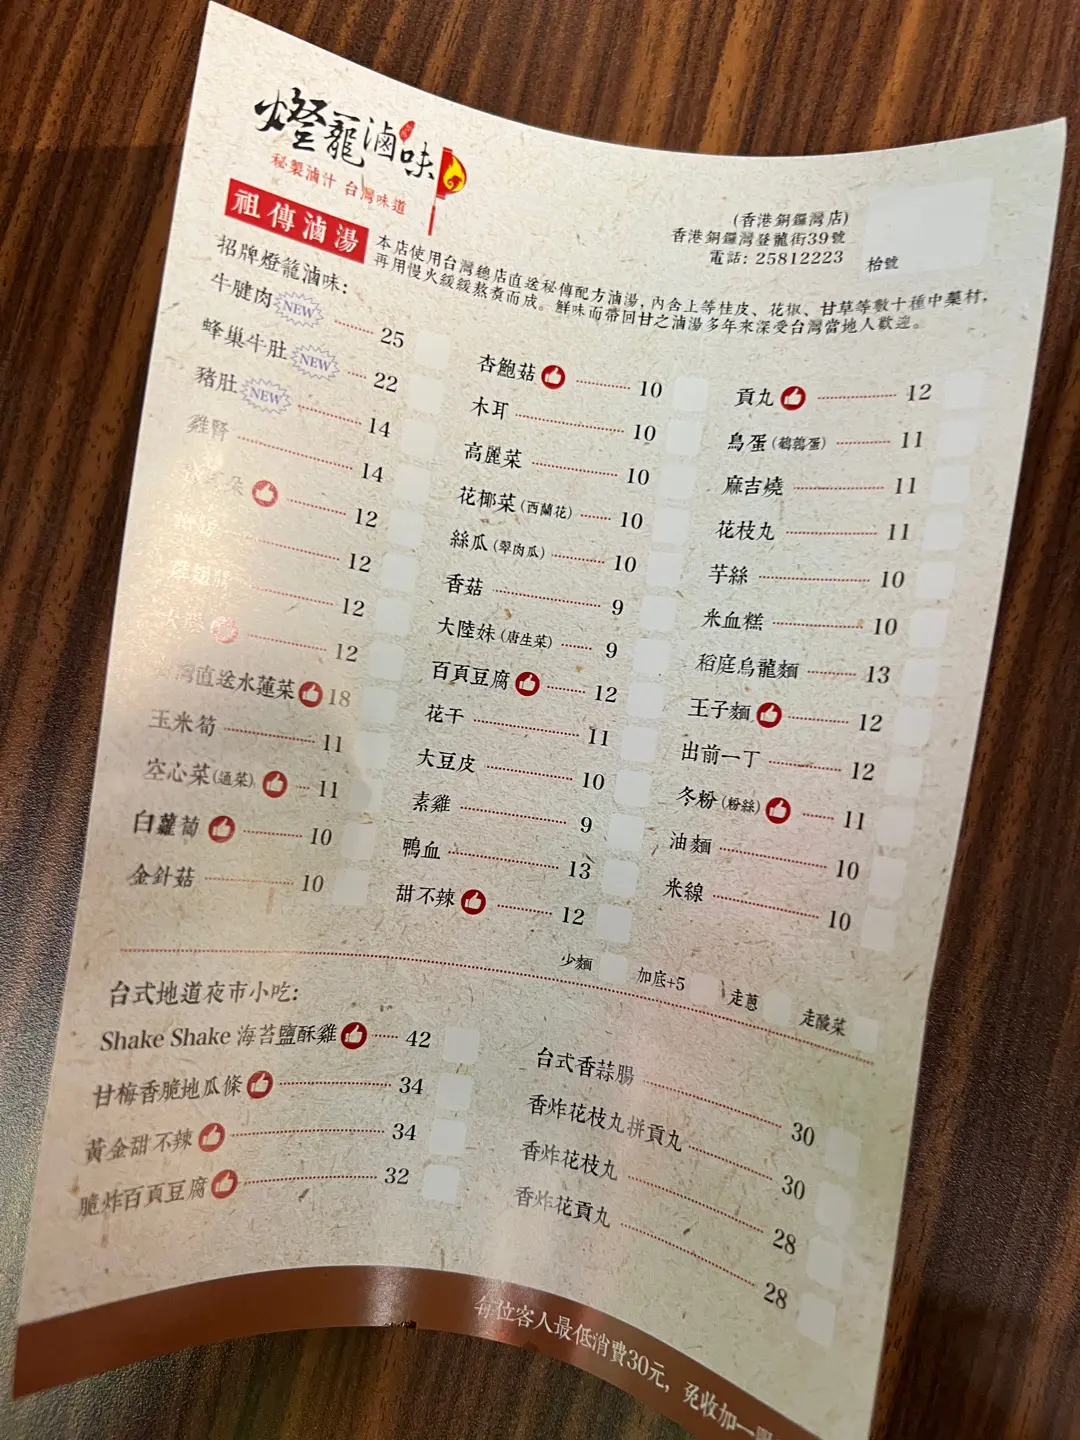 燈籠滷味
秘製滷汁 台灣味道
(香港銅鑼灣店)
香港銅鑼灣登龍街39號
電話: 25812223
枱號
祖傳滷湯
本店使用台灣總店直送秘傳配方滷湯, 內含上等桂皮、花椒、甘草等數十種中藥材,
再用慢火緩緩熬煮而成。鮮味而帶回甘之滷湯多年來深受台灣當地人歡迎。
招牌燈籠滷味:
牛腱肉 NEW 25
蜂巢牛肚 NEW 22
豬肚 NEW 14
雞腎 14
朵 12
12
12
12
灣直送水蓮菜 18
玉米筍 11
空心菜(通菜) 11
白蘿蔔 10
金針菇 10
杏鮑菇 10
木耳 10
高麗菜 10
花椰菜(西蘭花) 10
絲瓜(翠肉瓜) 10
香菇 9
大陸妹(唐生菜) 9
百頁豆腐 12
花干 11
大豆皮 10
素雞 9
鴨血 13
甜不辣 12
貢丸 12
鳥蛋(鵪鶉蛋) 11
麻吉燒 11
花枝丸 11
芋絲 10
米血糕 10
稻庭烏龍麵 13
王子麵 12
出前一丁 12
冬粉(粉絲) 11
油麵 10
米線 10
少麵 加底+5 走蔥 走酸菜
台式地道夜市小吃:
Shake Shake 海苔鹽酥雞 42
甘梅香脆地瓜條 34
黃金甜不辣 34
脆炸百頁豆腐 32
台式香蒜腸 30
香炸花枝丸拼貢丸 30
香炸花枝丸 28
香炸花貢丸 28
每位客人最低消費30元, 免收加一